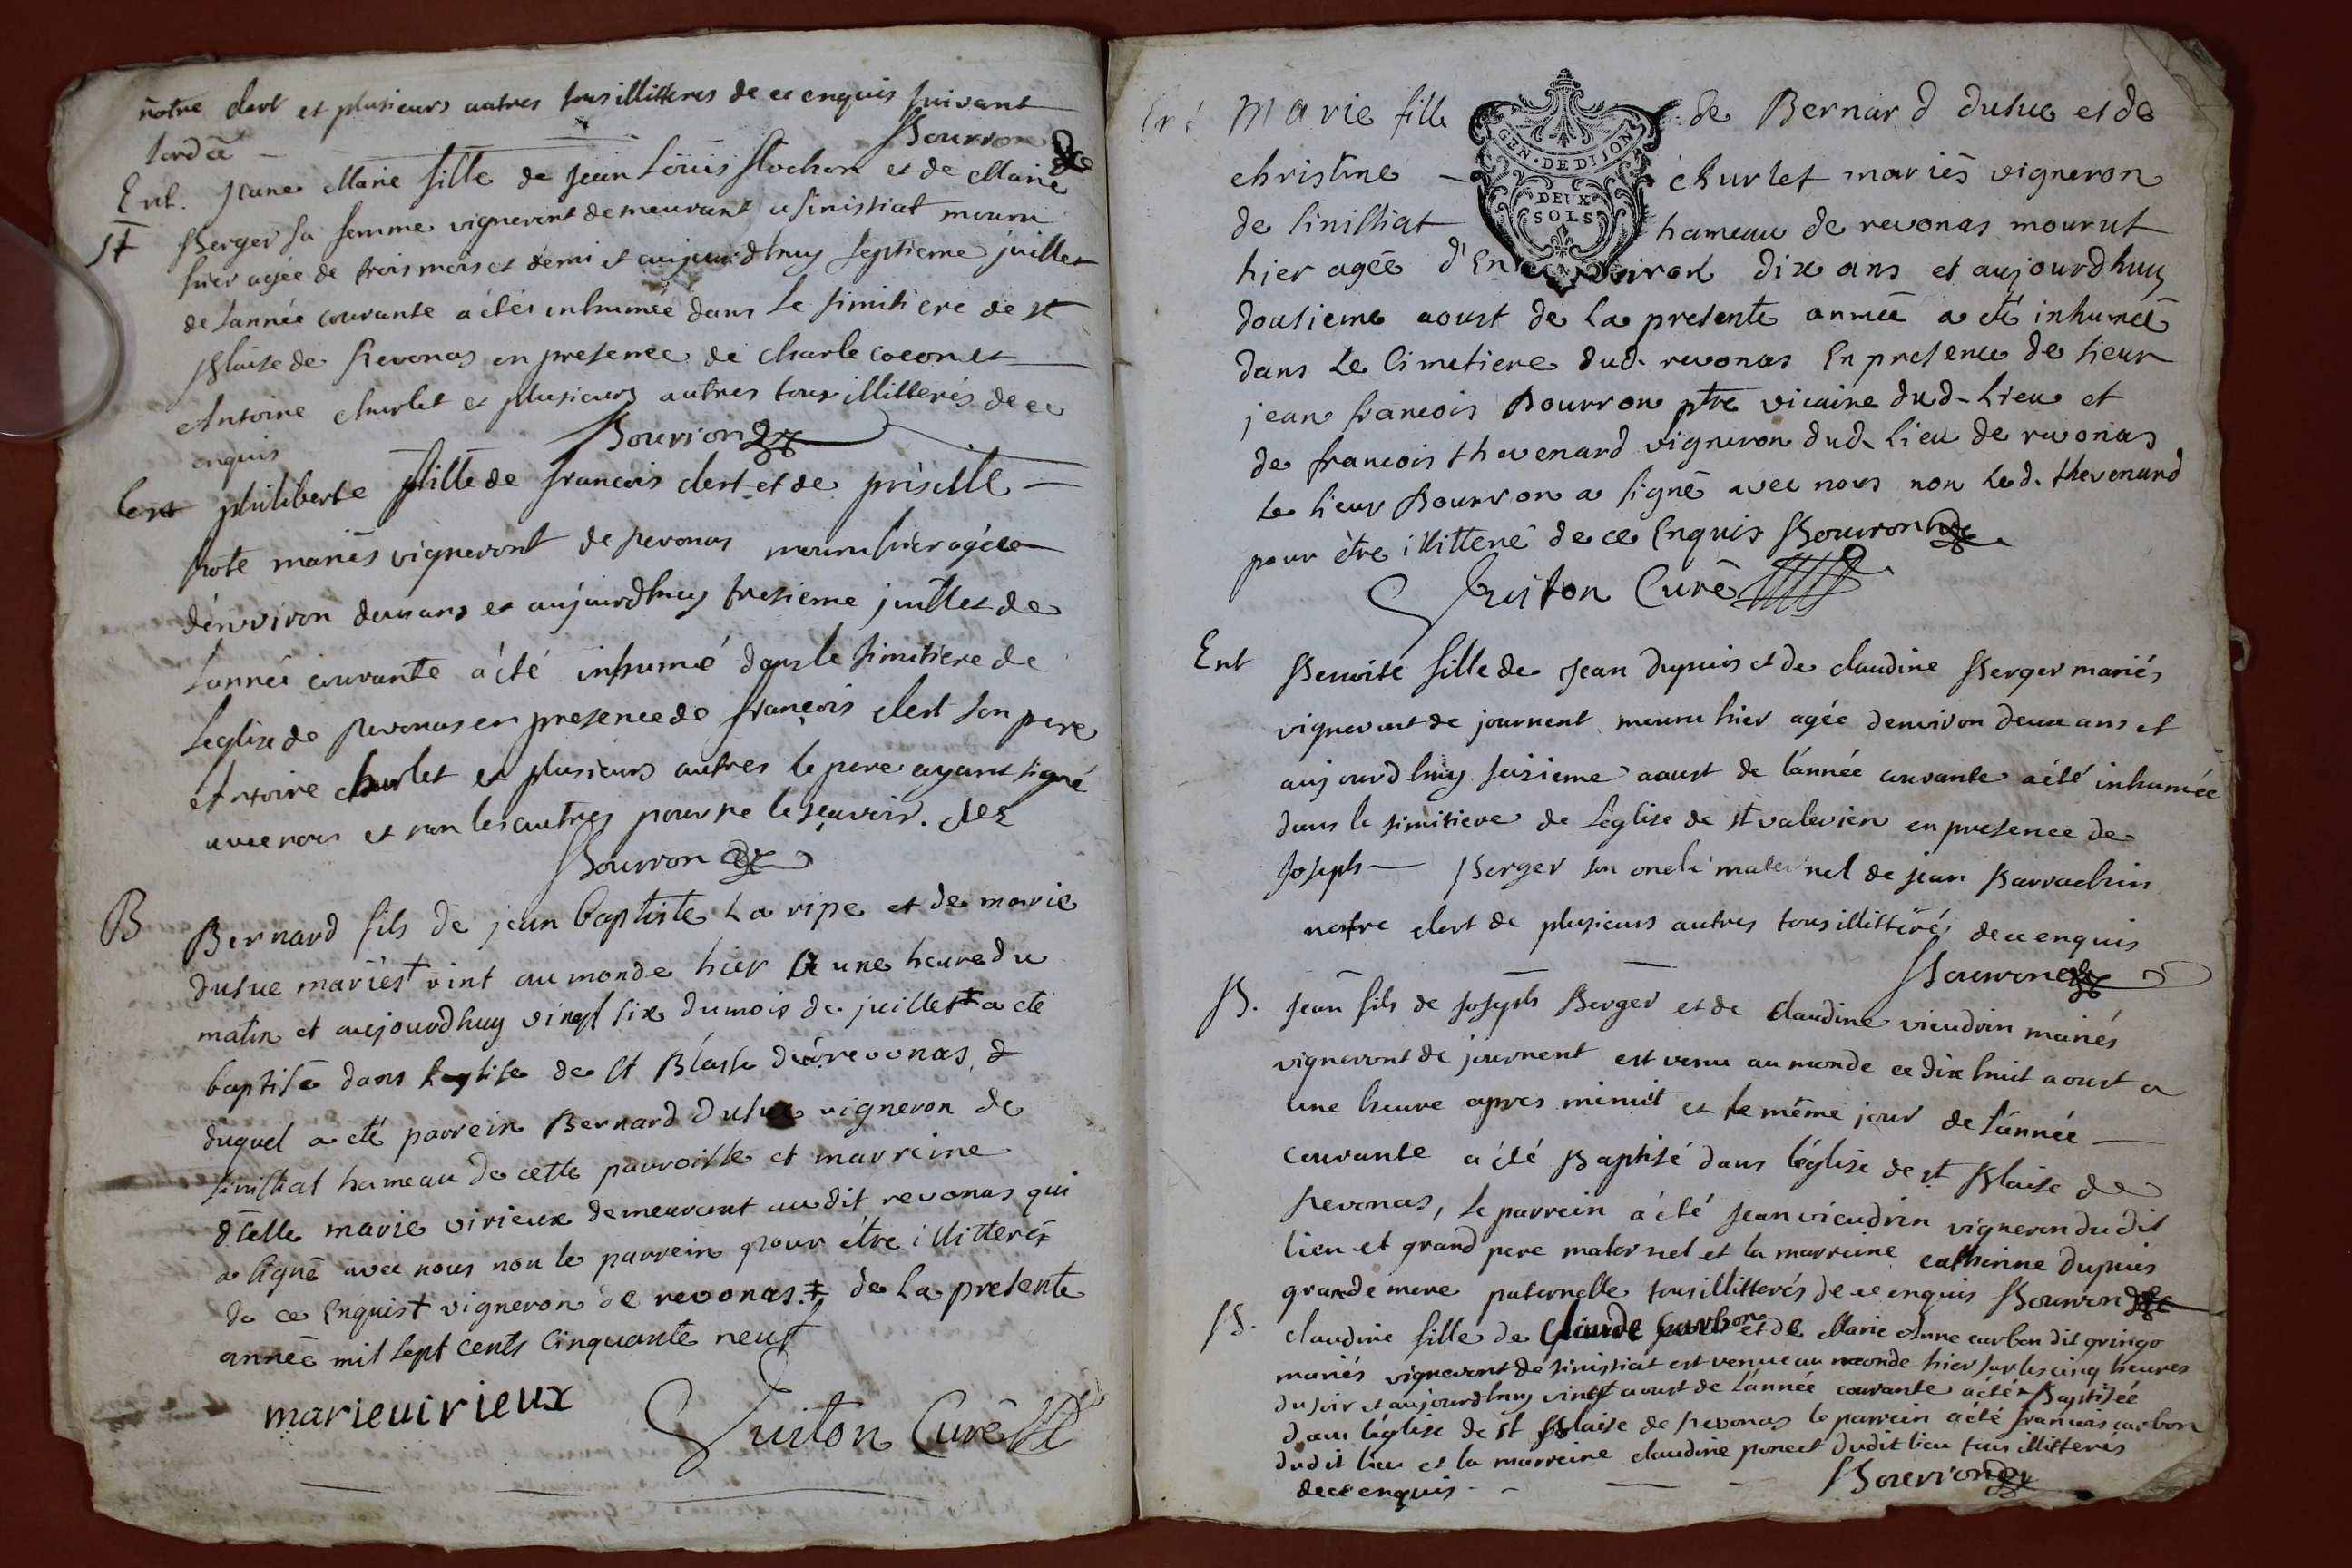 notre clert et plusieurs autres tous illitteres de ce enquis suivant
lord ce
Bourron
Ent. Jeane Marie fille de Jean Louis Stochon et de Marie
st Berger sa femme vigneront demeurant a sinissiat mouru
hier agée de trois mois et demi et aujourd'huy septieme juillet
de l'année courante a étés inhumée dans le simitiere de st
Blaise de Revonas en presence de charle cocon et
Antoine churlet et plusieurs autres tous illitterés de ce
enquis
Bourron
Ent philiberte fille de francois clert et de prisille
mariés vigneront de Revonas mouru hier agée
d'environ deus ans et aujourdhuy tresieme juillet de
lannée courante a été inhumé dans le simitiere de
leglise de Revonas en presence de françois clert son pere
Antoine churlet et plusieurs autres le pere ayant signé
avec nous et non les autres pour ne le sçavoir.
Bourron
B Bernard fils de jean baptiste La ripe et de marie
dusue mariés + vint au monde hier a une heure du
matin et aujourdhuy vingt six du mois de juillet ‡ a eté
baptisé dans leglise de st Blaise de revonas,
duquel a eté parrein Bernard dusue vigneron de
sinissiat hameau de cette parroisse et marreine
dlle marie virieux demeurant audit revonas qui
a signé avec nous non le parrein pour être illitteré
de ce Enquis + vigneron de revonas. ‡ de La presente
année mil sept cents cinquante neuf
marie uirieux
Guiton Curé
Ent Marie fille de Bernard dusue et de
GEN · DE DIJON
christine churlet mariés vigneron
DEUX
SOLS
de sinissiat hameau de revonas mourut
hier agée d'Environ dix ans et aujourdhuy
dousieme aoust de La presente année a eté inhumée
dans Le Cimetiere dud. revonas En presence de sieur
jean francois Bourron ptre vicaire dud. Lieu et
de francois thevenard vigneron dud. Lieu de revonas
le sieur Bourron a signé avec nous non Led. thevenard
pour être illitteré de ce Enquis Bourron
Guiton Curé
Ent Benoite fille de Jean Dupuis et de claudine Berger mariés
vigneront de journent mouru hier agée denviron deux ans et
aujourdhuy seisieme aoust de l'année courante a été inhumée
dans le simitiere de L'eglise de st valerien en presence de
Joseph Berger son oncle maternel de jean Barrachin
notre clert de plusieurs autres tous illitterés de ce enquis
Bourron
B. Jean fils de Joseph Berger et de claudine vieudrin mariés
vigneront de journent est venu au monde ce dix huit aoust a
une heure apres minuit et le même jour de l'année
courante a été Baptisé dans l'église de st Blaise de
Revonas, le parrein a été Jean vieudrin vigneron du dit
lieu et grand pere maternel et la marreine catherine Dupuis
grande mere paternelle tous illitterés de ce enquis Bourron
B. claudine fille de Claude carbon et de Marie Anne carbon dit gringo
mariés vigneront de sinissiat est venue au monde hier sur les cinq heures
du soir et aujourdhuy vingt aoust de l'année courante a été Baptisée
dans l'église de st Blaise de Revonas le parrein a été francois carbon
dudit lieu et la marreine claudine poncet dudit lieu tous illitterés
de ce enquis
Bourron